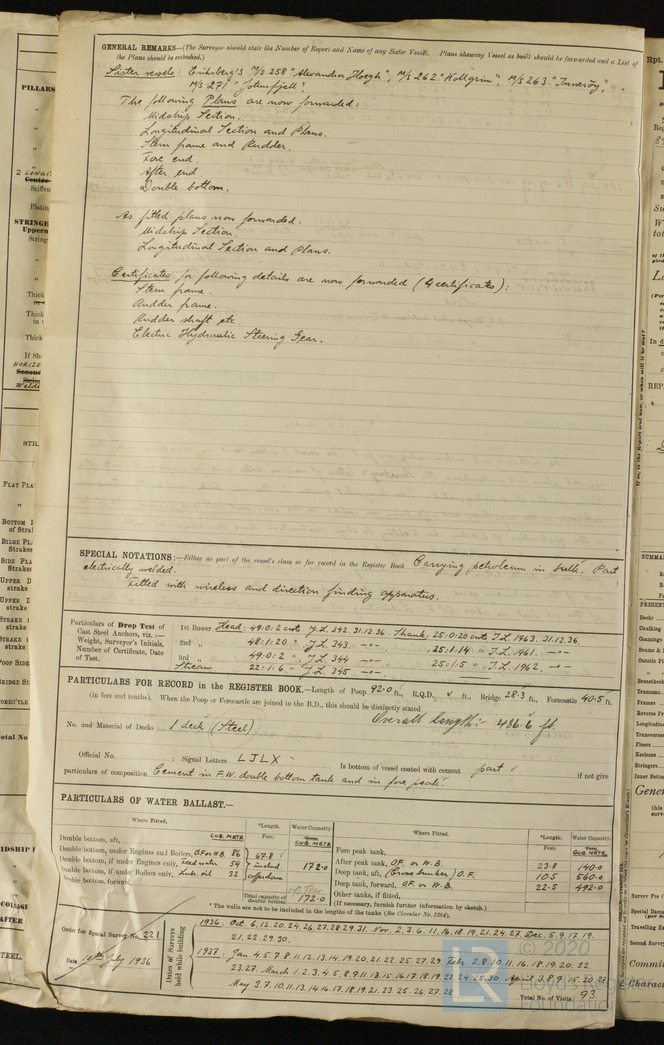 GENERAL REMARKS—(The Surveyor should state the Number of Report and Name of any Sister Vessel. Plans showing Vessel as built should be forwarded and a List of
the Plans should be embodied.)
Sister vessels: Eriksberg's M/S 258 "Alexandra Hoegh", M/S 262 "Kollgrim", M/S 263 "Inneröy",
M/S 271 "Jotunfjell".
The following Plans are now forwarded:
Midship Section.
Longitudinal Section and Plans.
Stern frame and Rudder.
Fore end.
After end.
Double bottom.
As fitted plans now forwarded:
Midship Section.
Longitudinal Section and Plans.
Certificates for following details are now forwarded (4 certificates):
Stern frame.
Rudder frame.
Rudder shaft etc.
Electric Hydraulic Steering Gear.
SPECIAL NOTATIONS:—Either as part of the vessel's class or for record in the Register Book Carrying petroleum in bulk. Part
electrically welded.
Fitted with wireless and direction finding apparatus.
Particulars of Drop Test of
Cast Steel Anchors, viz.:—
Weight, Surveyor's Initials,
Number of Certificate, Date
of Test.
1st Bower Head: 49:0:2 cwts J.L. 342. 31.12.36. Shank: 25:0:20 cwts J.L. 1963. 31.12.36.
2nd " 48:1:20 " J.L. 343 —"— 25:1:14 " J.L. 1961. —"—
3rd " 49:0:2 " J.L. 344 —"— 25:1:5 " J.L. 1962. —"—
Stream 22:1:6 " J.L. 345 —"—
PARTICULARS FOR RECORD in the REGISTER BOOK.—Length of Poop 92.0 ft., R.Q.D. ft., Bridge 28.3 ft., Forecastle 40.5 ft.
(in feet and tenths). When the Poop or Forecastle are joined to the B.D., this should be distinctly stated
Overall length:- 486.6 ft.
No. and Material of Decks 1 deck (Steel)
Official No. ; Signal Letters LJLX Is bottom of vessel coated with cement part if not give
particulars of composition Cement in F.W. double bottom tank and in fore peak.
PARTICULARS OF WATER BALLAST.—
Where Fitted. *Length. Water Capacity. Where Fitted. *Length. Water Capacity.
Feet. CUB. METR Feet. CUB. METR
Double bottom, aft, CUB. METR
Double bottom, under Engines and Boilers, O.F. or W.B. 86
Double bottom, if under Engines only, Feed water 54
Double bottom, if under Boilers only, Lub. oil 32
Double bottom, forward,
67.8 includ. cofferdam 172.0
Total capacity of double bottom 172.0
Fore peak tank,
After peak tank, O.F. or W.B. 23.8 140.0
Deep tank, aft, (Cross bunker) O.F. 10.5 560.0
Deep tank, forward, O.F. or W.B. 22.5 492.0
Other tanks, if fitted,
(If necessary, furnish further information by sketch.)
* The wells are not to be included in the lengths of the tanks (See Circular No. 1284).
Order for Special Survey No. 221
Date 10th July 1936
Dates of Surveys held while building
1936. Oct. 6.12.20.24.26.27.28.29.31. Nov. 2.3.6.11.16.18.19.21.24.27. Dec. 5.9.17.19.
21.22.29.30.
1937. Jan. 4.5.7.8.11.12.13.14.19.20.21.22.25.27.29. Febr. 2.8.10.11.16.18.19.20.22.
23.27. March 1.2.3.4.5.8.9.11.13.15.16.17.18.19.22.24.25.30. April 3.8.9.15.20.27.
May 3.7.10.11.13.14.16.17.18.19.21.23.25.26.27.28.
Total No. of Visits 93
© 2020
Lloyd's Register
Foundation
LR